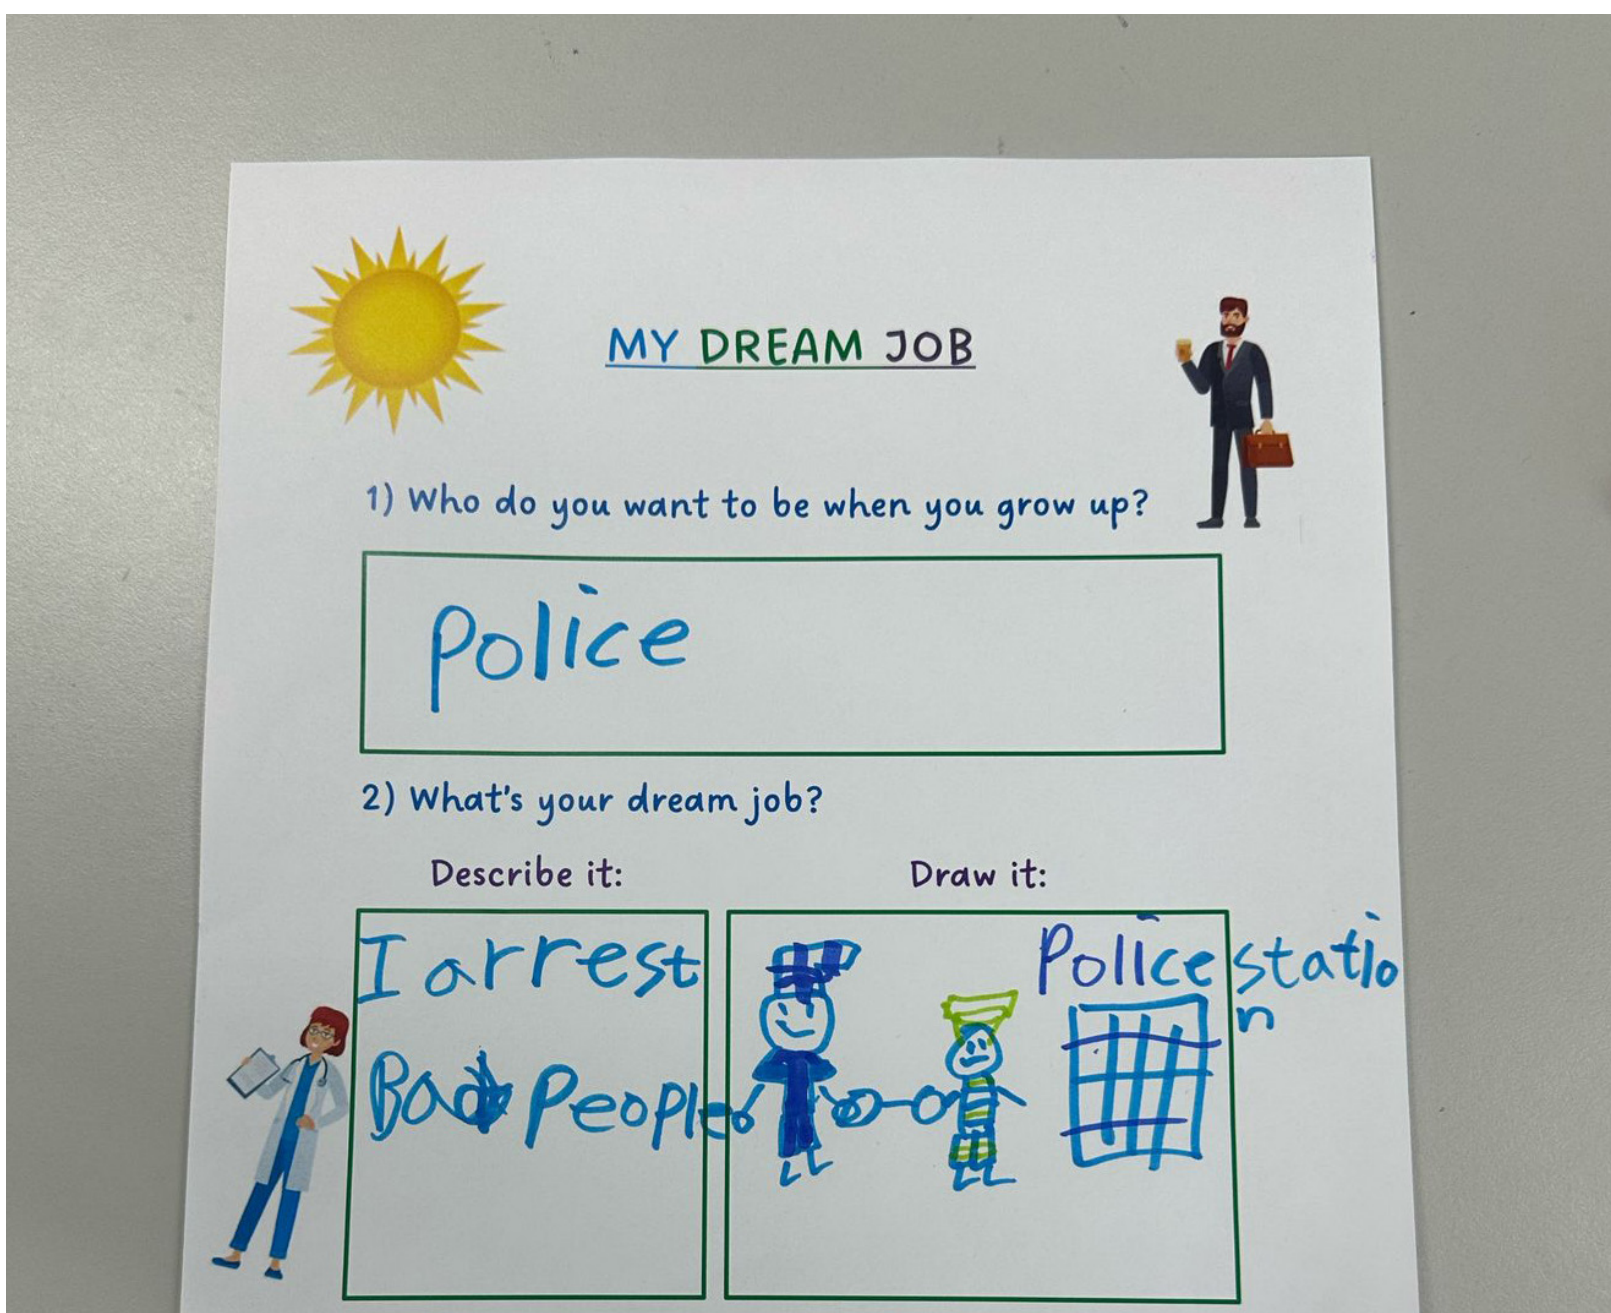 MY DREAM JOB
1) Who do you want to be when you grow up?
Police
2) What's your dream job?
Describe it:
Draw it:
I arrest
Bad People
Police statio
n